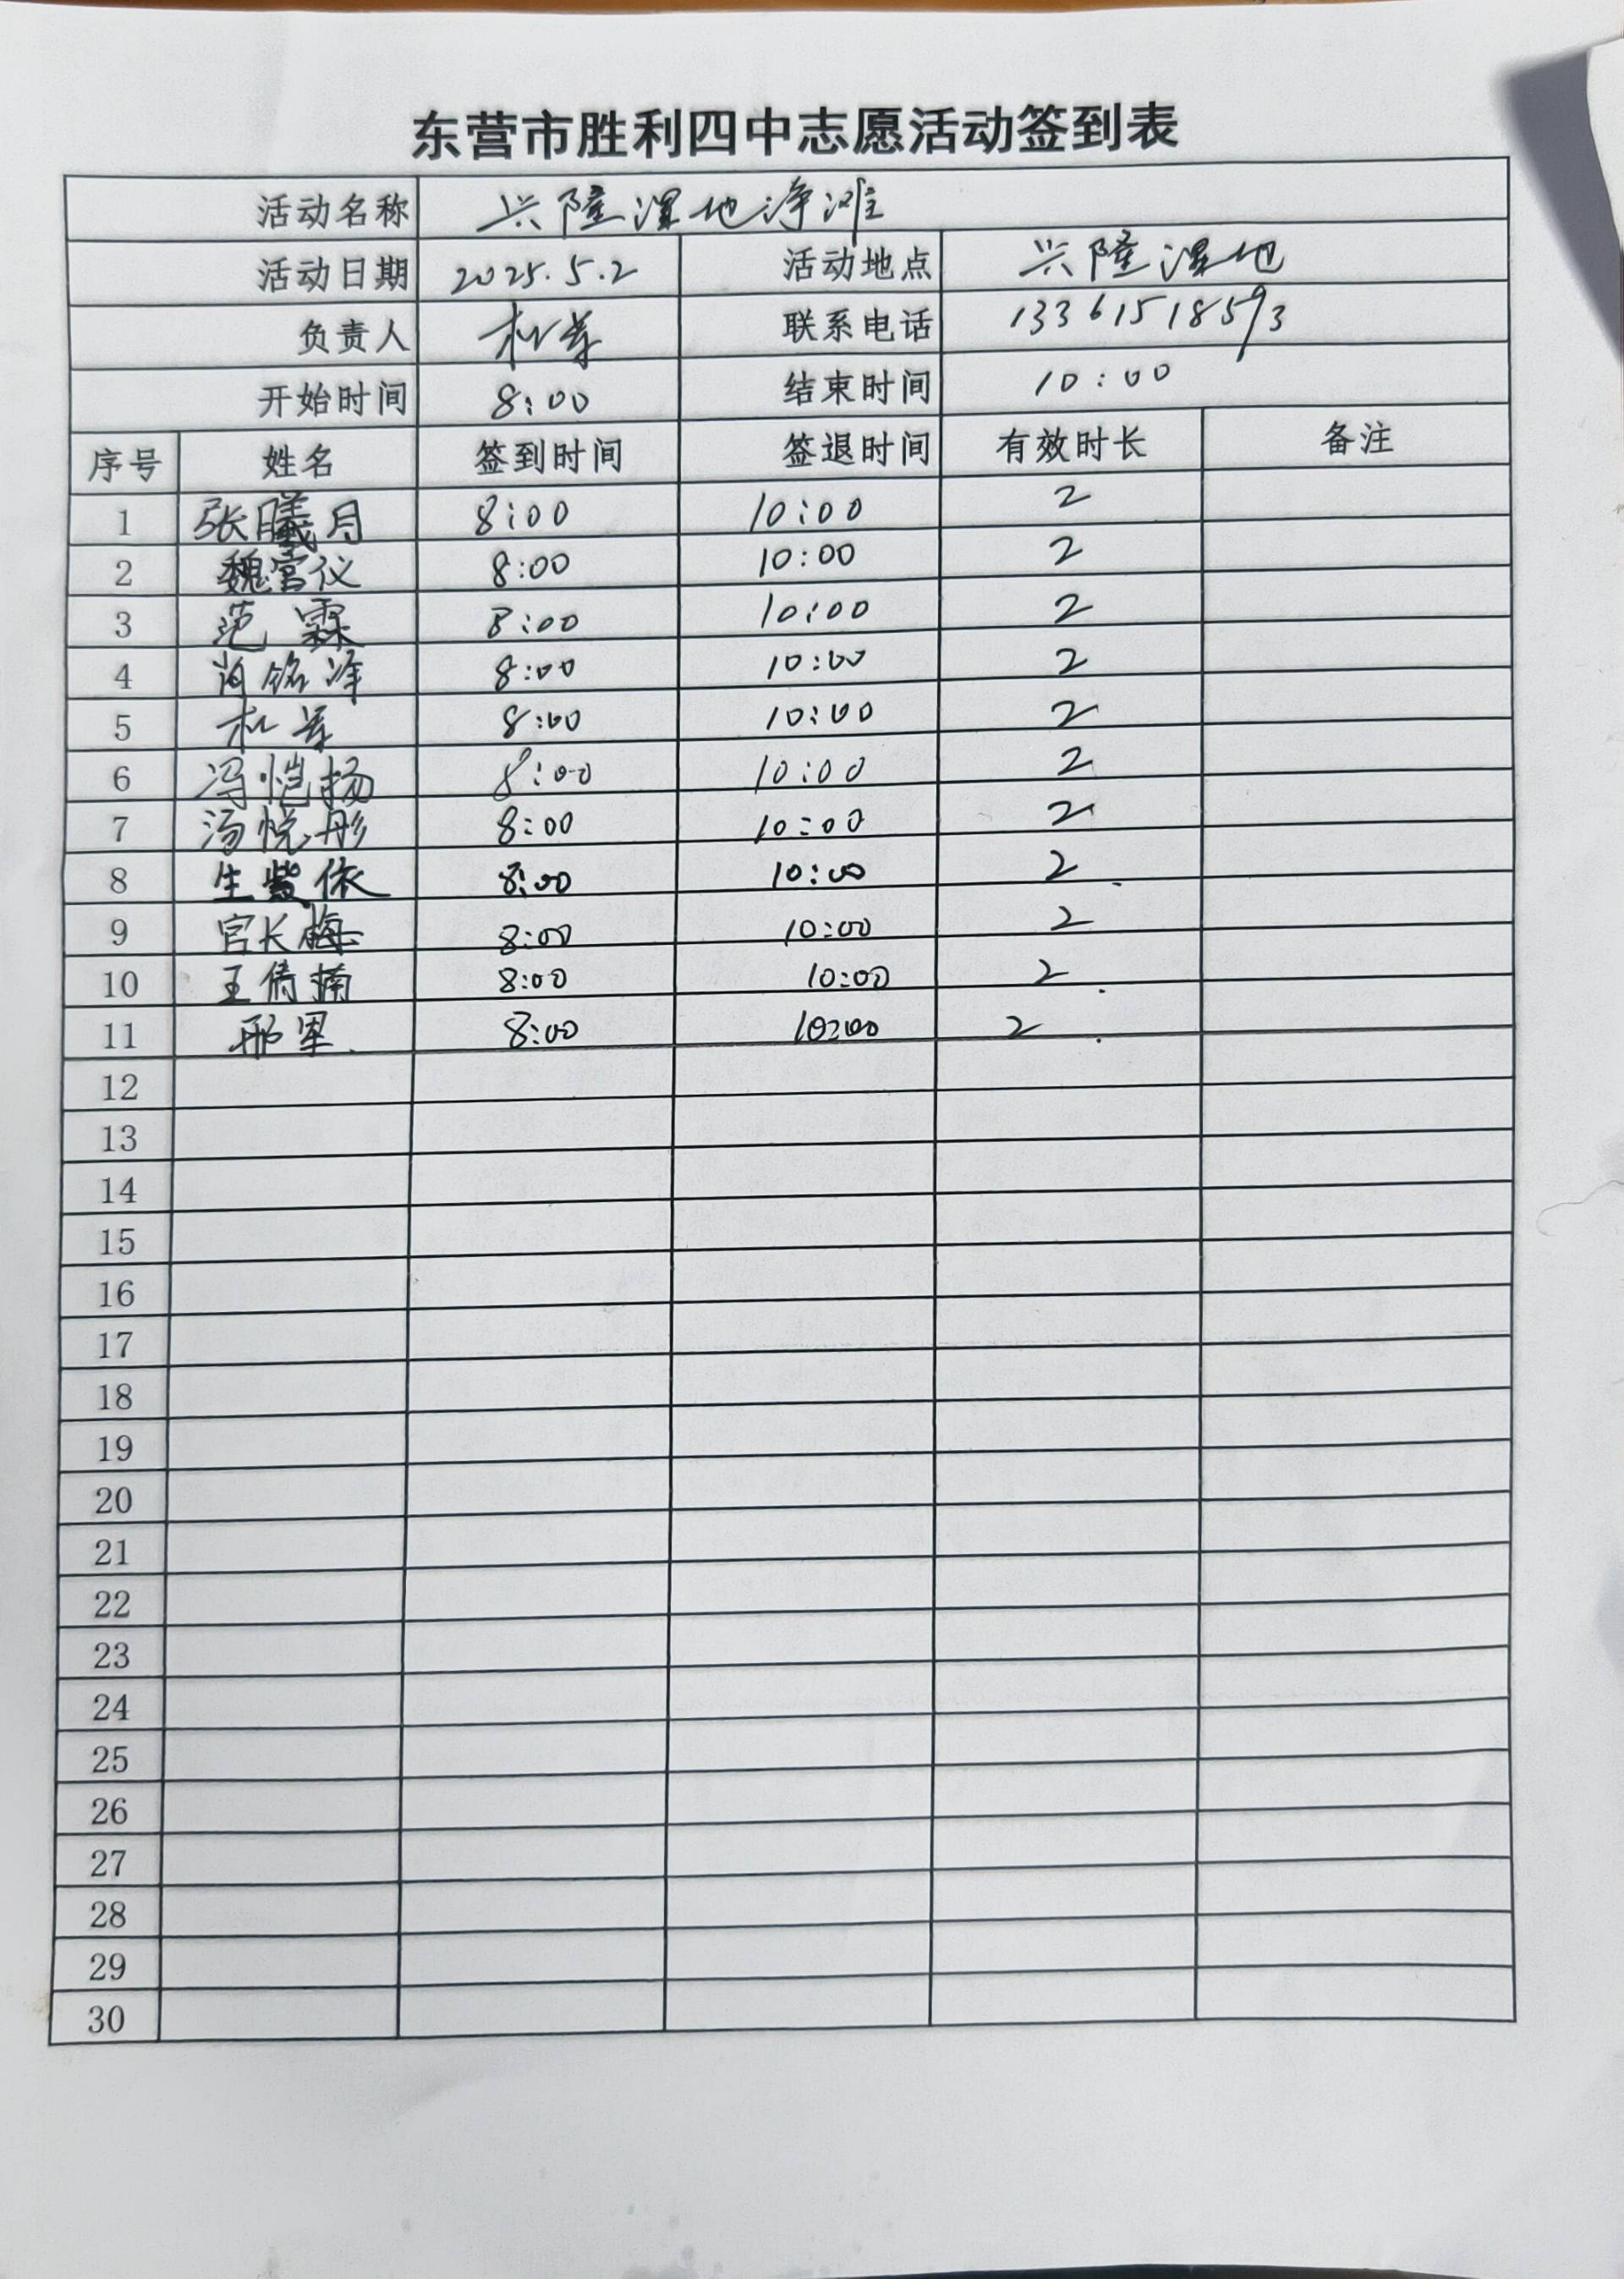 东营市胜利四中志愿活动签到表
活动名称 兴隆湿地净滩
活动日期 2025.5.2 活动地点 兴隆湿地
负责人 联系电话 13361518593
开始时间 8:00 结束时间 10:00
序号 姓名 签到时间 签退时间 有效时长 备注
1 张曦月 8:00 10:00 2
2 魏宫仪 8:00 10:00 2
3 范霖 8:00 10:00 2
4 肖铭泽 8:00 10:00 2
5 8:00 10:00 2
6 冯恺扬 8:00 10:00 2
7 汤悦彤 8:00 10:00 2
8 生紫依 8:00 10:00 2
9 官长梅 8:00 10:00 2
10 王倩楠 8:00 10:00 2
11 8:00 10:00 2
12
13
14
15
16
17
18
19
20
21
22
23
24
25
26
27
28
29
30